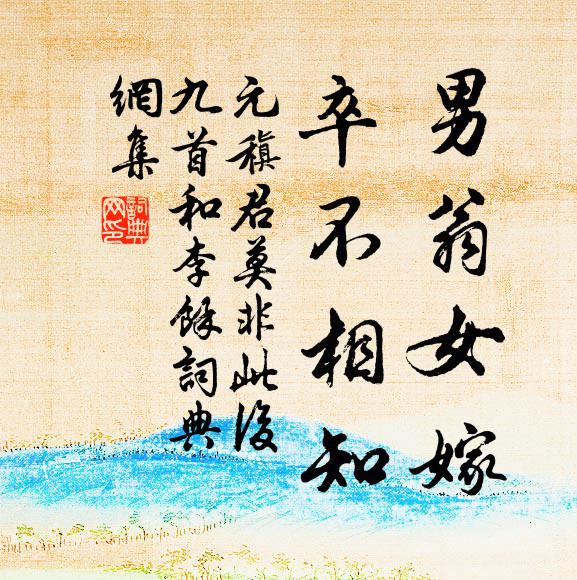 男翁女嫁
卒不相知
元稹君莫非此後
九首和李餘詞典
網集
詞典
网印